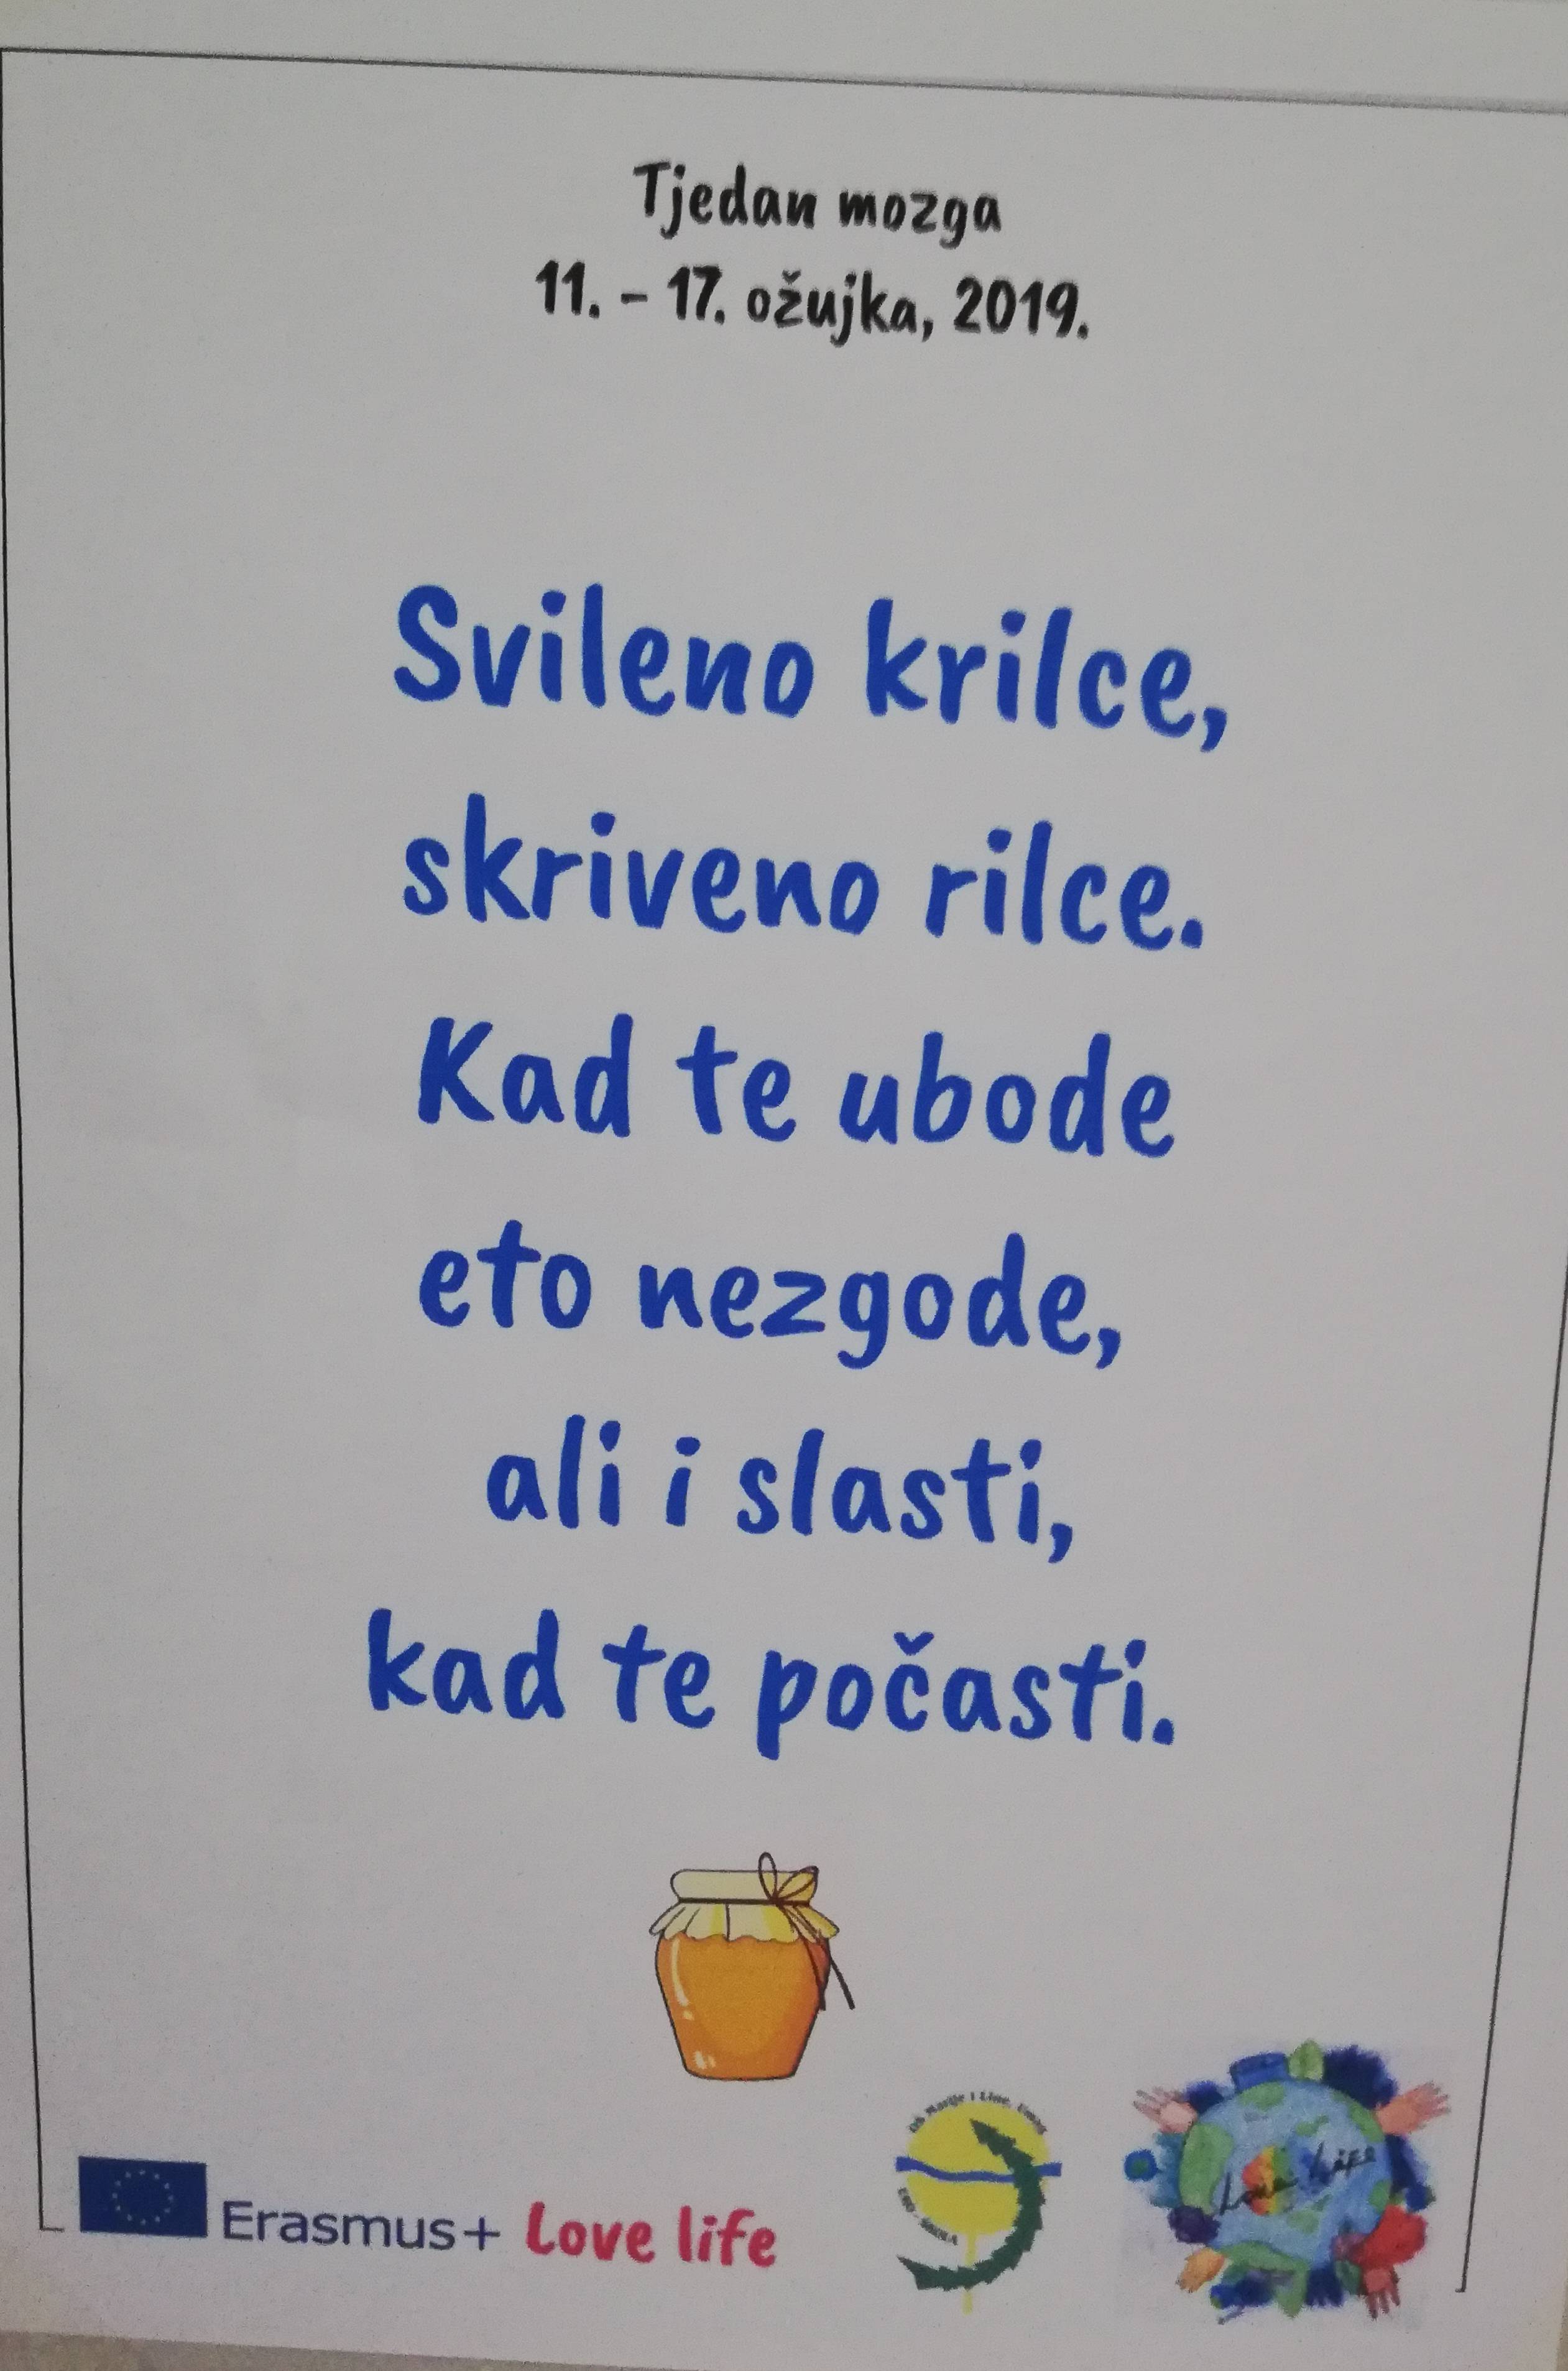 Tjedan mozga
11. - 17. ožujka, 2019.
Svileno krilce,
skriveno rilce.
Kad te ubode
eto nezgode,
ali i slasti,
kad te počasti.
Erasmus+ Love life
OŠ Marije i Line, Umag
Love Life